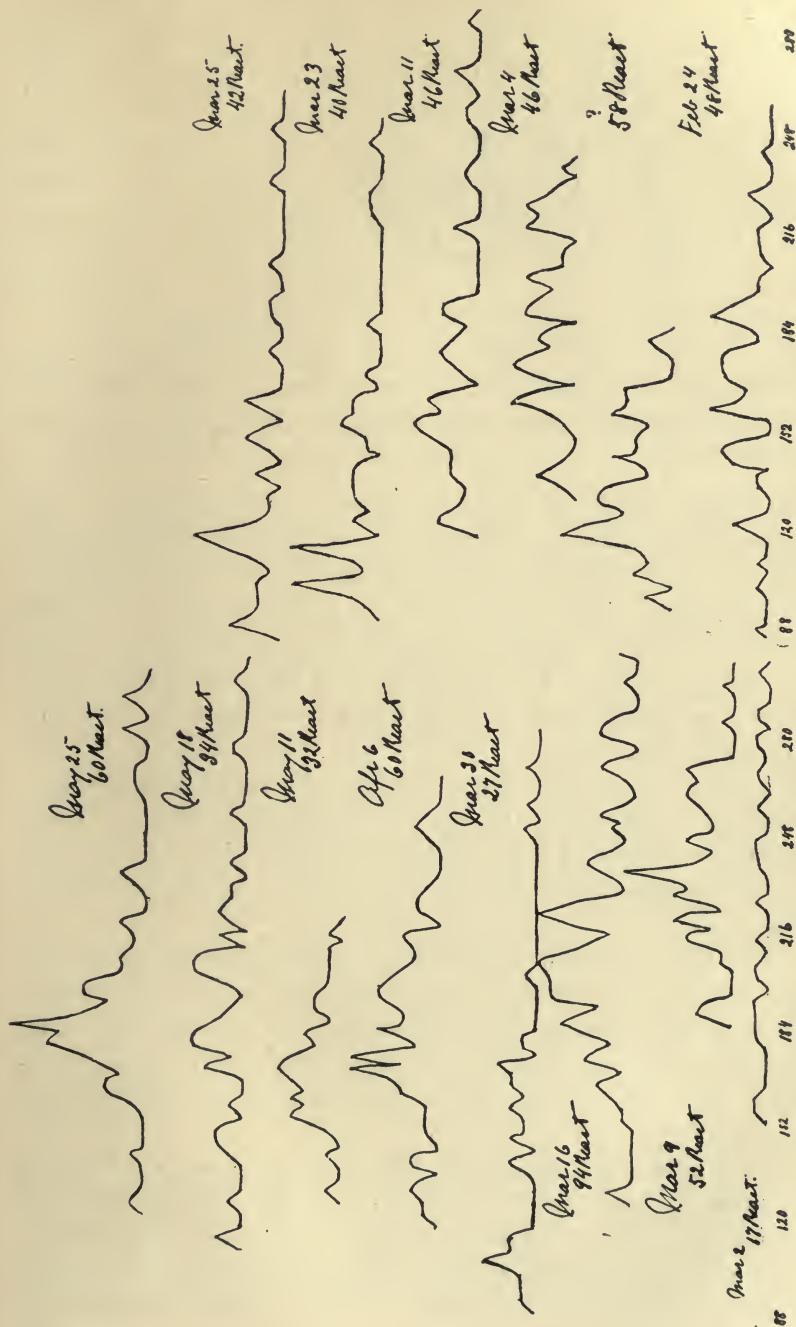 May 25
60 React.
May 18
34 React
May 11
32 React
Apr 6
60 React
Mar 30
27 React
Mar 16
94 React
Mar 9
52 React
Mar 2
17 React.
88 120 152 184 216 248 280
Mar 25
42 React.
Mar 23
40 React
Mar 11
46 React
Mar 4
46 React
?
58 React
Feb 24
48 React
88 120 152 184 216 248 280